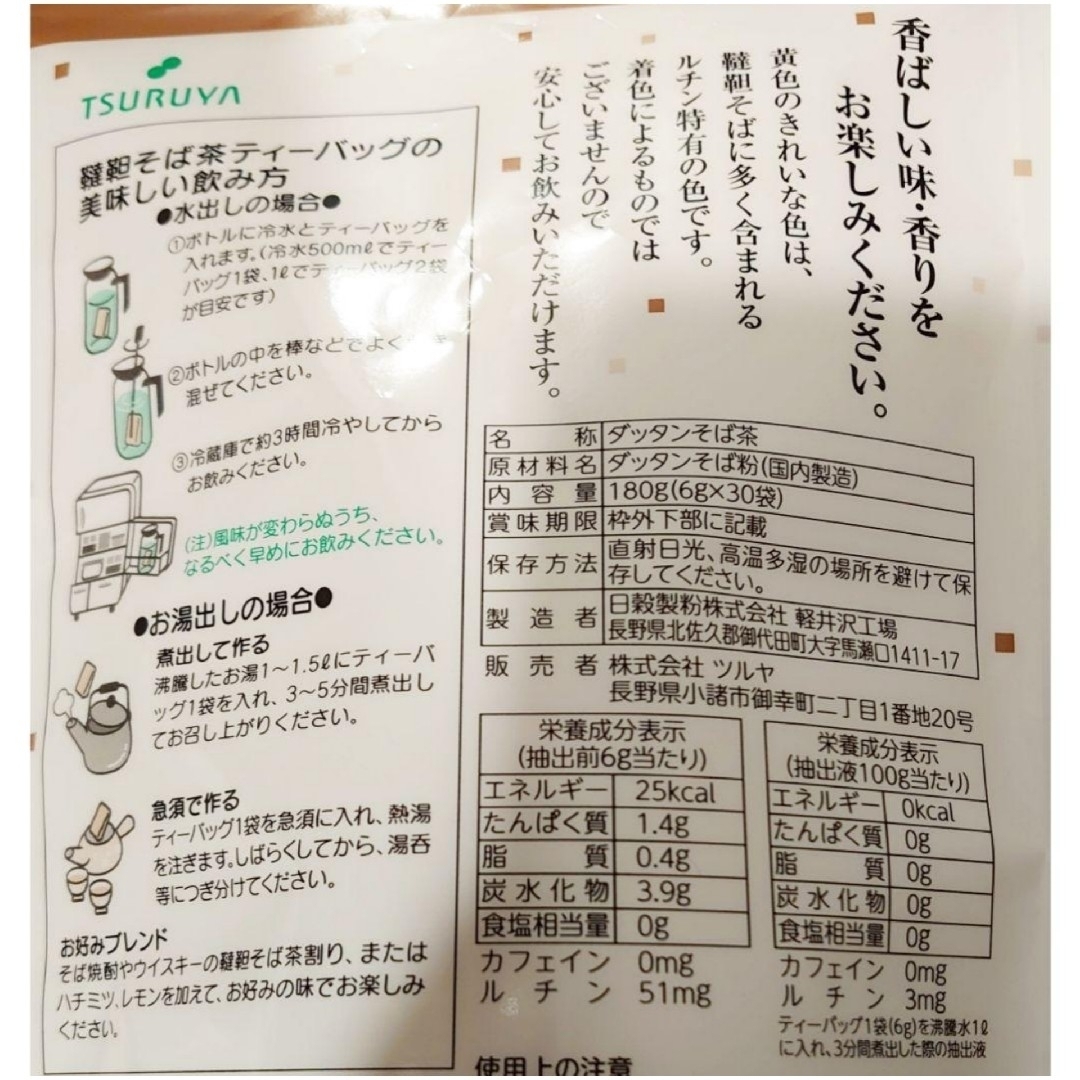 香ばしい味・香りを
お楽しみください。
黄色のきれいな色は、
韃靼そばに多く含まれる
ルチン特有の色です。
着色によるものでは
ございませんので
安心してお飲みいただけます。
TSURUYA
韃靼そば茶ティーバッグの
美味しい飲み方
●水出しの場合●
①ボトルに冷水とティーバッグを
入れます。(冷水500mℓでティー
バッグ1袋、1ℓでティーバッグ2袋
が目安です)
②ボトルの中を棒などでよく
混ぜてください。
③冷蔵庫で約3時間冷やしてから
お飲みください。
(注)風味が変わらぬうち、
なるべく早めにお飲みください。
●お湯出しの場合●
煮出して作る
沸騰したお湯1〜1.5ℓにティーバ
ッグ1袋を入れ、3〜5分間煮出し
てお召し上がりください。
急須で作る
ティーバッグ1袋を急須に入れ、熱湯
を注ぎます。しばらくしてから、湯呑
等につぎ分けてください。
お好みブレンド
そば焼酎やウイスキーの韃靼そば茶割り、または
ハチミツ、レモンを加えて、お好みの味でお楽しみ
ください。
名称 ダッタンそば茶
原材料名 ダッタンそば粉(国内製造)
内容量 180g(6g×30袋)
賞味期限 枠外下部に記載
保存方法 直射日光、高温多湿の場所を避けて保
存してください。
製造者 日穀製粉株式会社 軽井沢工場
長野県北佐久郡御代田町大字馬瀬口1411-17
販売者 株式会社 ツルヤ
長野県小諸市御幸町二丁目1番地20号
栄養成分表示
(抽出前6g当たり)
エネルギー 25kcal
たんぱく質 1.4g
脂質 0.4g
炭水化物 3.9g
食塩相当量 0g
カフェイン 0mg
ルチン 51mg
栄養成分表示
(抽出液100g当たり)
エネルギー 0kcal
たんぱく質 0g
脂質 0g
炭水化物 0g
食塩相当量 0g
カフェイン 0mg
ルチン 3mg
ティーバッグ1袋(6g)を沸騰水1ℓ
に入れ、3分間煮出した際の抽出液
使用上の注意